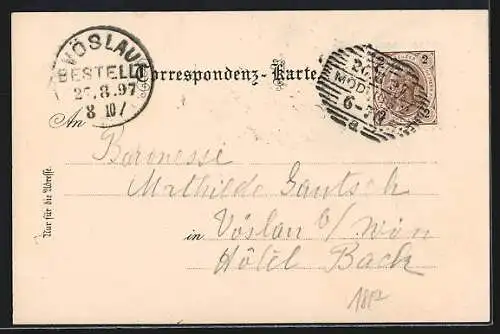 VÖSLAU
BESTELLT
8 10/
Correspondenz-Karte.
2
MÖD
6-
a
2
An
Baronesse
Mathilde Gautsch
in Vöslau b/ Wien
Hôtel Bach
Nur für die Adresse.
1897